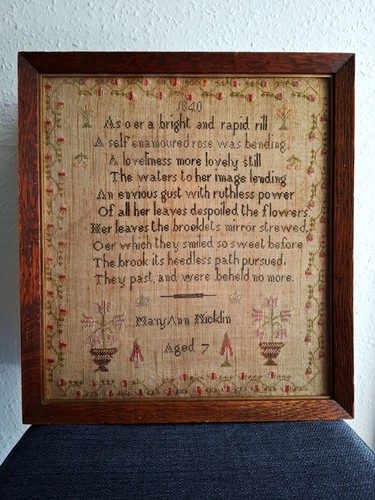 1840
As o er a bright and rapid rill
A self enamoured rose was bending,
A loveliness more lovely still
The waters to her image lending
An envious gust with ruthless power
Of all her leaves despoiled the flowers
Her leaves the brooklets mirror strewed,
Oer which they smiled so sweet before
The brook its heedless path pursued,
They past, and were beheld no more.
MaryAnn Nicklin
Aged 7